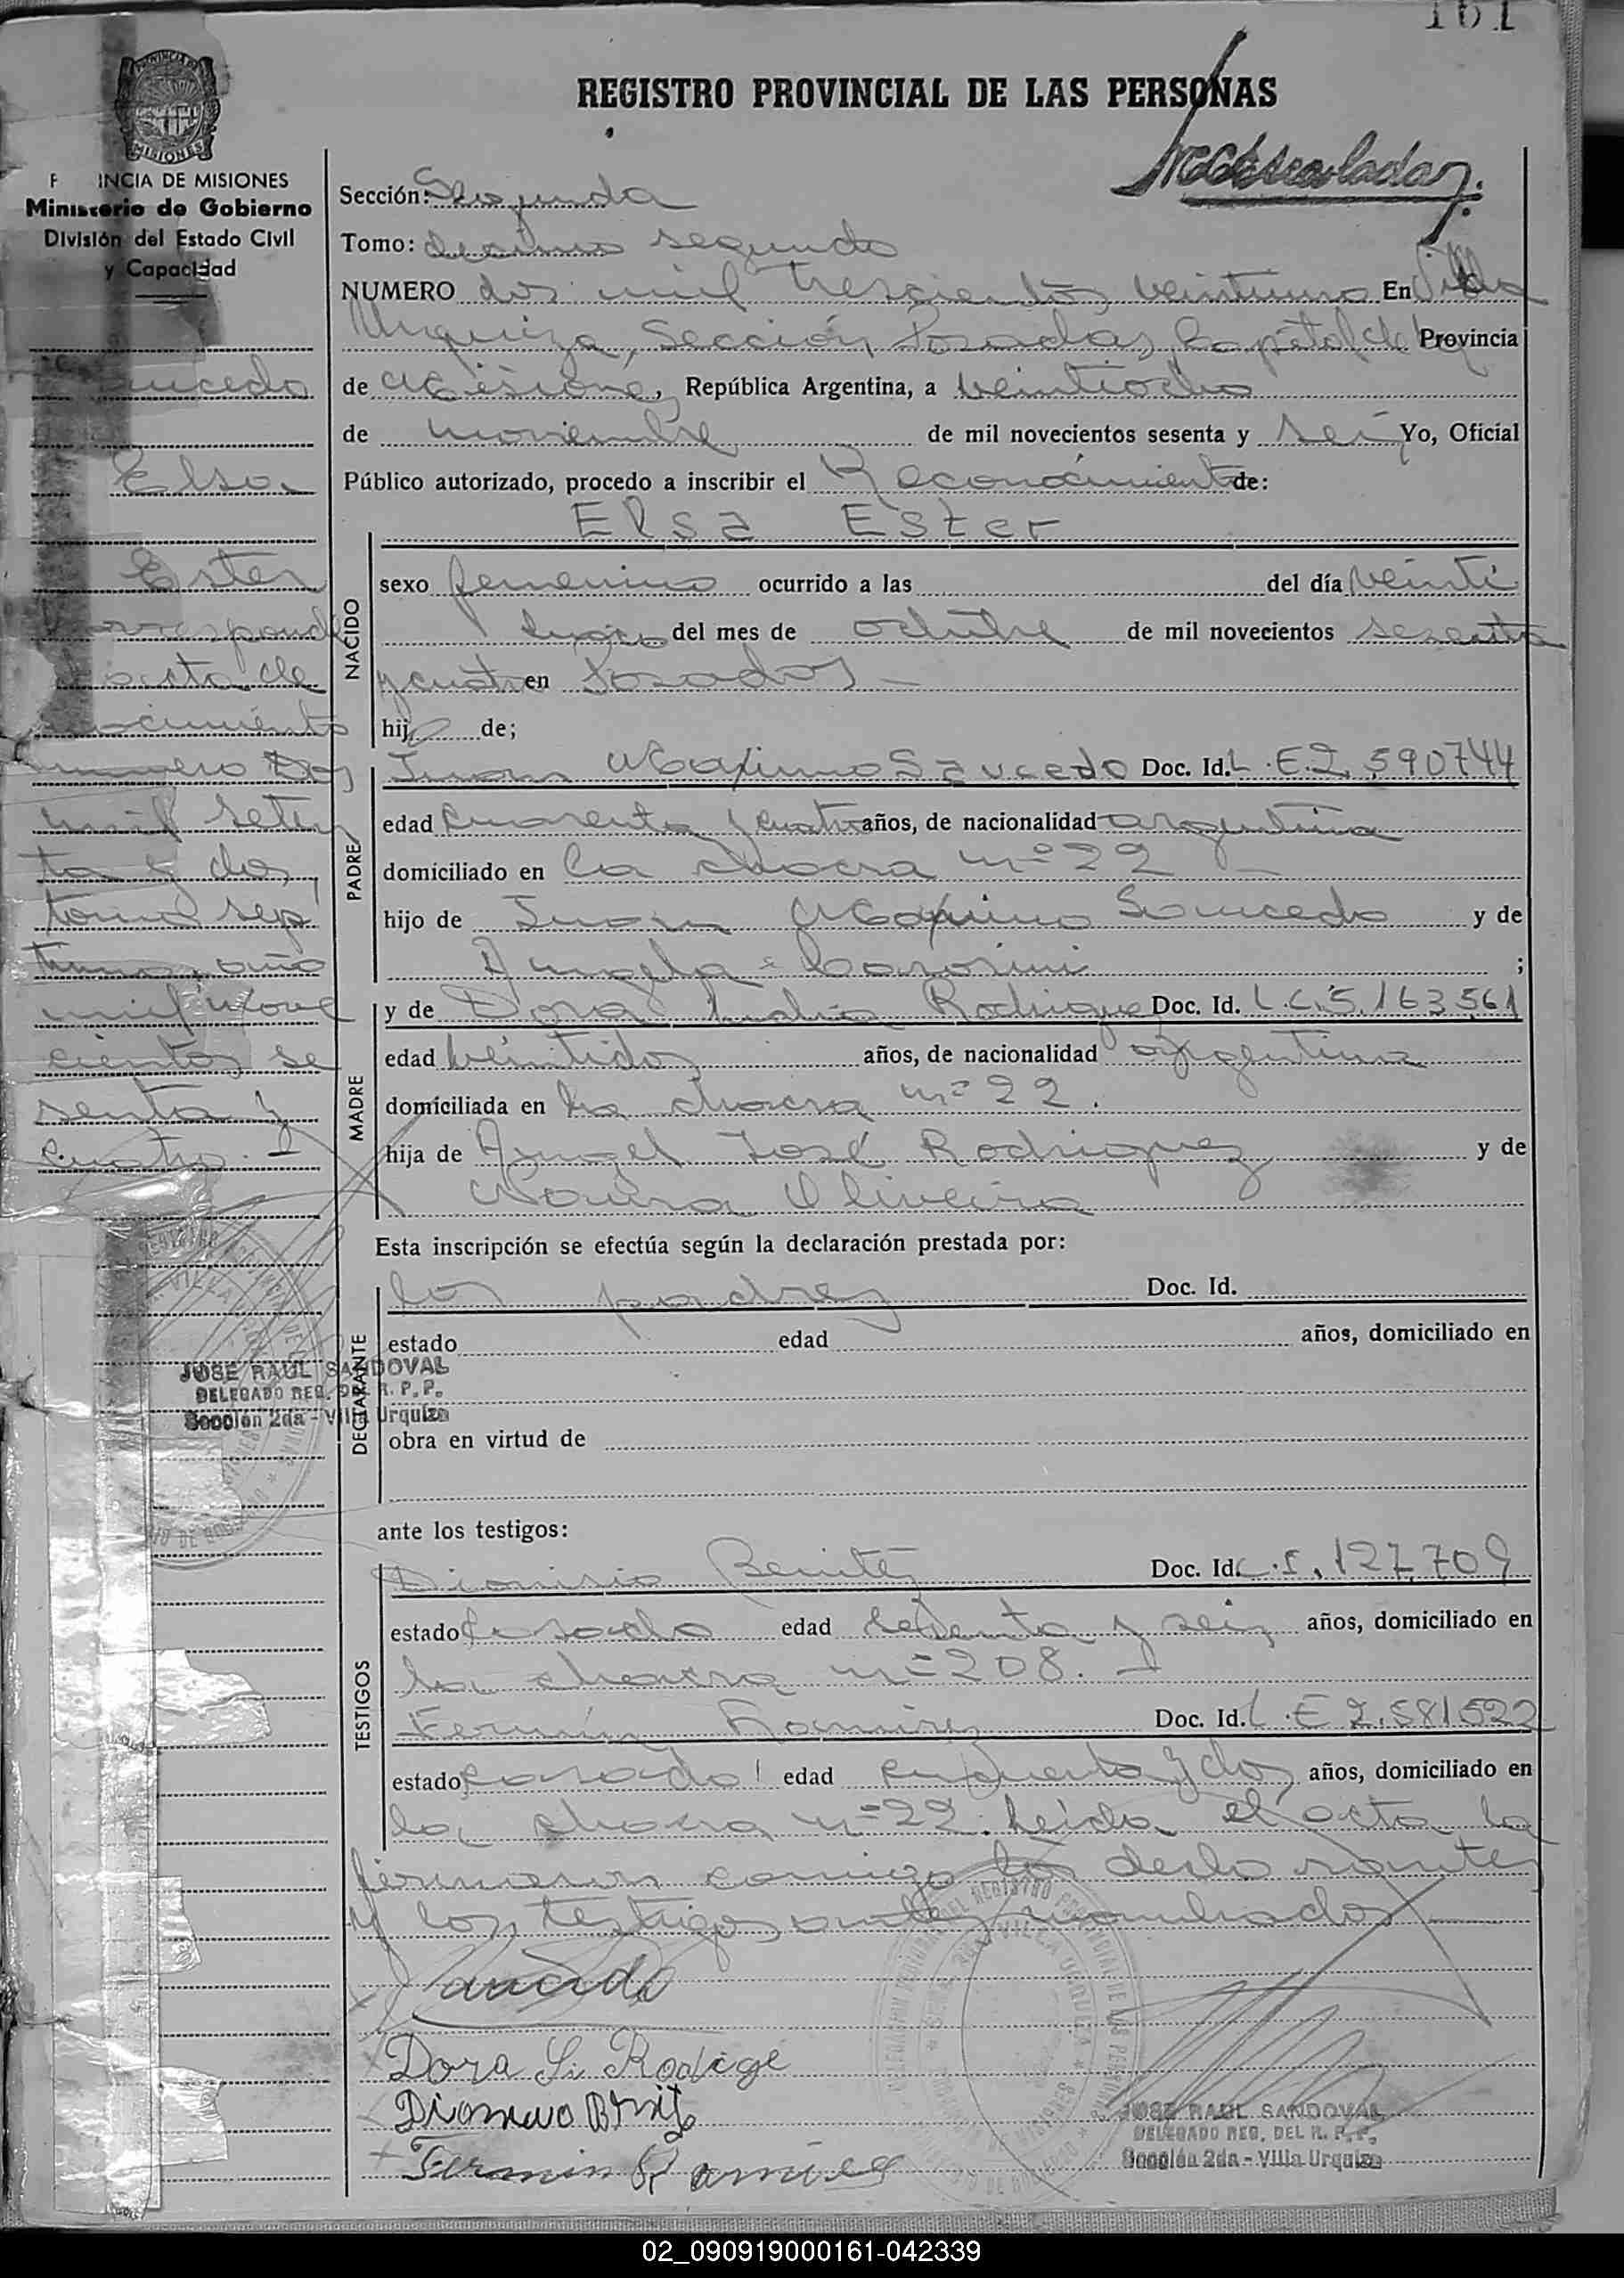 161
REGISTRO PROVINCIAL DE LAS PERSONAS
PROVINCIA DE
MISIONES
P INCIA DE MISIONES
Ministerio de Gobierno
División del Estado Civil
y Capacidad
ucedo
Elsa
Ester
rresponde
acta de
cimiento
numero Dos
mil seten
ta y dos,
tomo sép
timo, año
mil nove
cientos se
senta y
cuatro.
JOSE RAUL SANDOVAL
DELEGADO REG. DEL R. P. P.
Sección 2da - Villa Urquiza
Sección: Segunda
Tomo: decimo segundo
NUMERO dos mil trescientos veintiuno En Villa
Urquiza, Sección Posadas, Capital de la Provincia
de Misiones, República Argentina, a veintiocho
de noviembre de mil novecientos sesenta y seis Yo, Oficial
Público autorizado, procedo a inscribir el Reconocimiento de:
Elsa Ester
NACIDO
sexo femenino ocurrido a las del día veinti
cinco del mes de octubre de mil novecientos sesenta
y cuatro en Posadas
hija de;
PADRE
Juan Maximo Saucedo Doc. Id. L.E.2.590744
edad cuarenta y cuatro años, de nacionalidad argentina
domiciliado en la chacra nº 22
hijo de Juan Maximo Saucedo y de
Angela ;
MADRE
y de Dora Rodriguez Doc. Id. L.C.5.163.561
edad veintidos años, de nacionalidad argentina
domiciliada en la chacra nº 22.
hija de Angel José Rodriguez y de
Oliveira
Esta inscripción se efectúa según la declaración prestada por:
DECLARANTE
los padres Doc. Id.
estado edad años, domiciliado en
obra en virtud de
ante los testigos:
TESTIGOS
Dionisio Benitez Doc. Id. 127.709
estado casado edad y seis años, domiciliado en
la chacra nº 208.
Fermín Ramirez Doc. Id. L.E 2.581522
estado casado edad y dos años, domiciliado en
la chacra nº 22. Leída el acta la
firmaron conmigo los declarantes
y los testigos antes nombrados
Saucedo
Dora L. Rodige
Fermin Ramires
JOSE RAUL SANDOVAL
DELEGADO REG. DEL R. P. P.
Sección 2da - Villa Urquiza
02_090919000161-042339